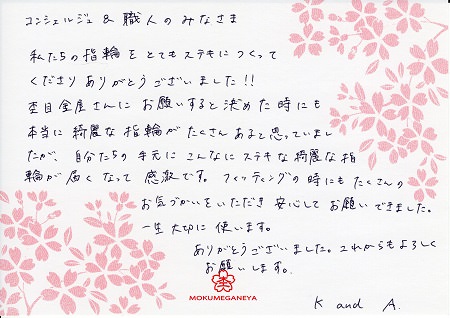 コンシェルジュ & 職人のみなさま
私たちの指輪をとてもステキにつくって
くださり ありがとうございました!!
杢目金屋さんに お願いすると決めた時にも
本当に綺麗な指輪がたくさんあると思っていまし
たが、自分たちの手元にこんなにステキな綺麗な指
輪が届くなって 感激です。フィッティングの時にもたくさんの
お気づかいをいただき 安心してお願いできました。
一生大切に使います。
ありがとうございました。これからもよろしく
お願いします。
杢
MOKUMEGANEYA
K and A.